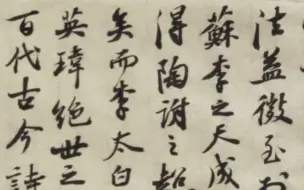 法益微至於
蘇李之天成
得陶謝之超
矣而李太白
英瑋絕世之
百代古今詩